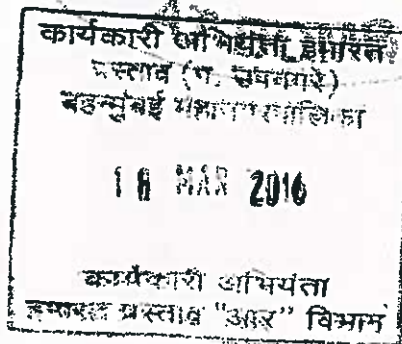 कार्यकारी अभियंता इमारत
प्रस्ताव (प. उपनगरे)
बृहन्मुंबई महानगरपालिका
MAR 2016
कार्यकारी अभियंता
इमारत प्रस्ताव "आर" विभाग